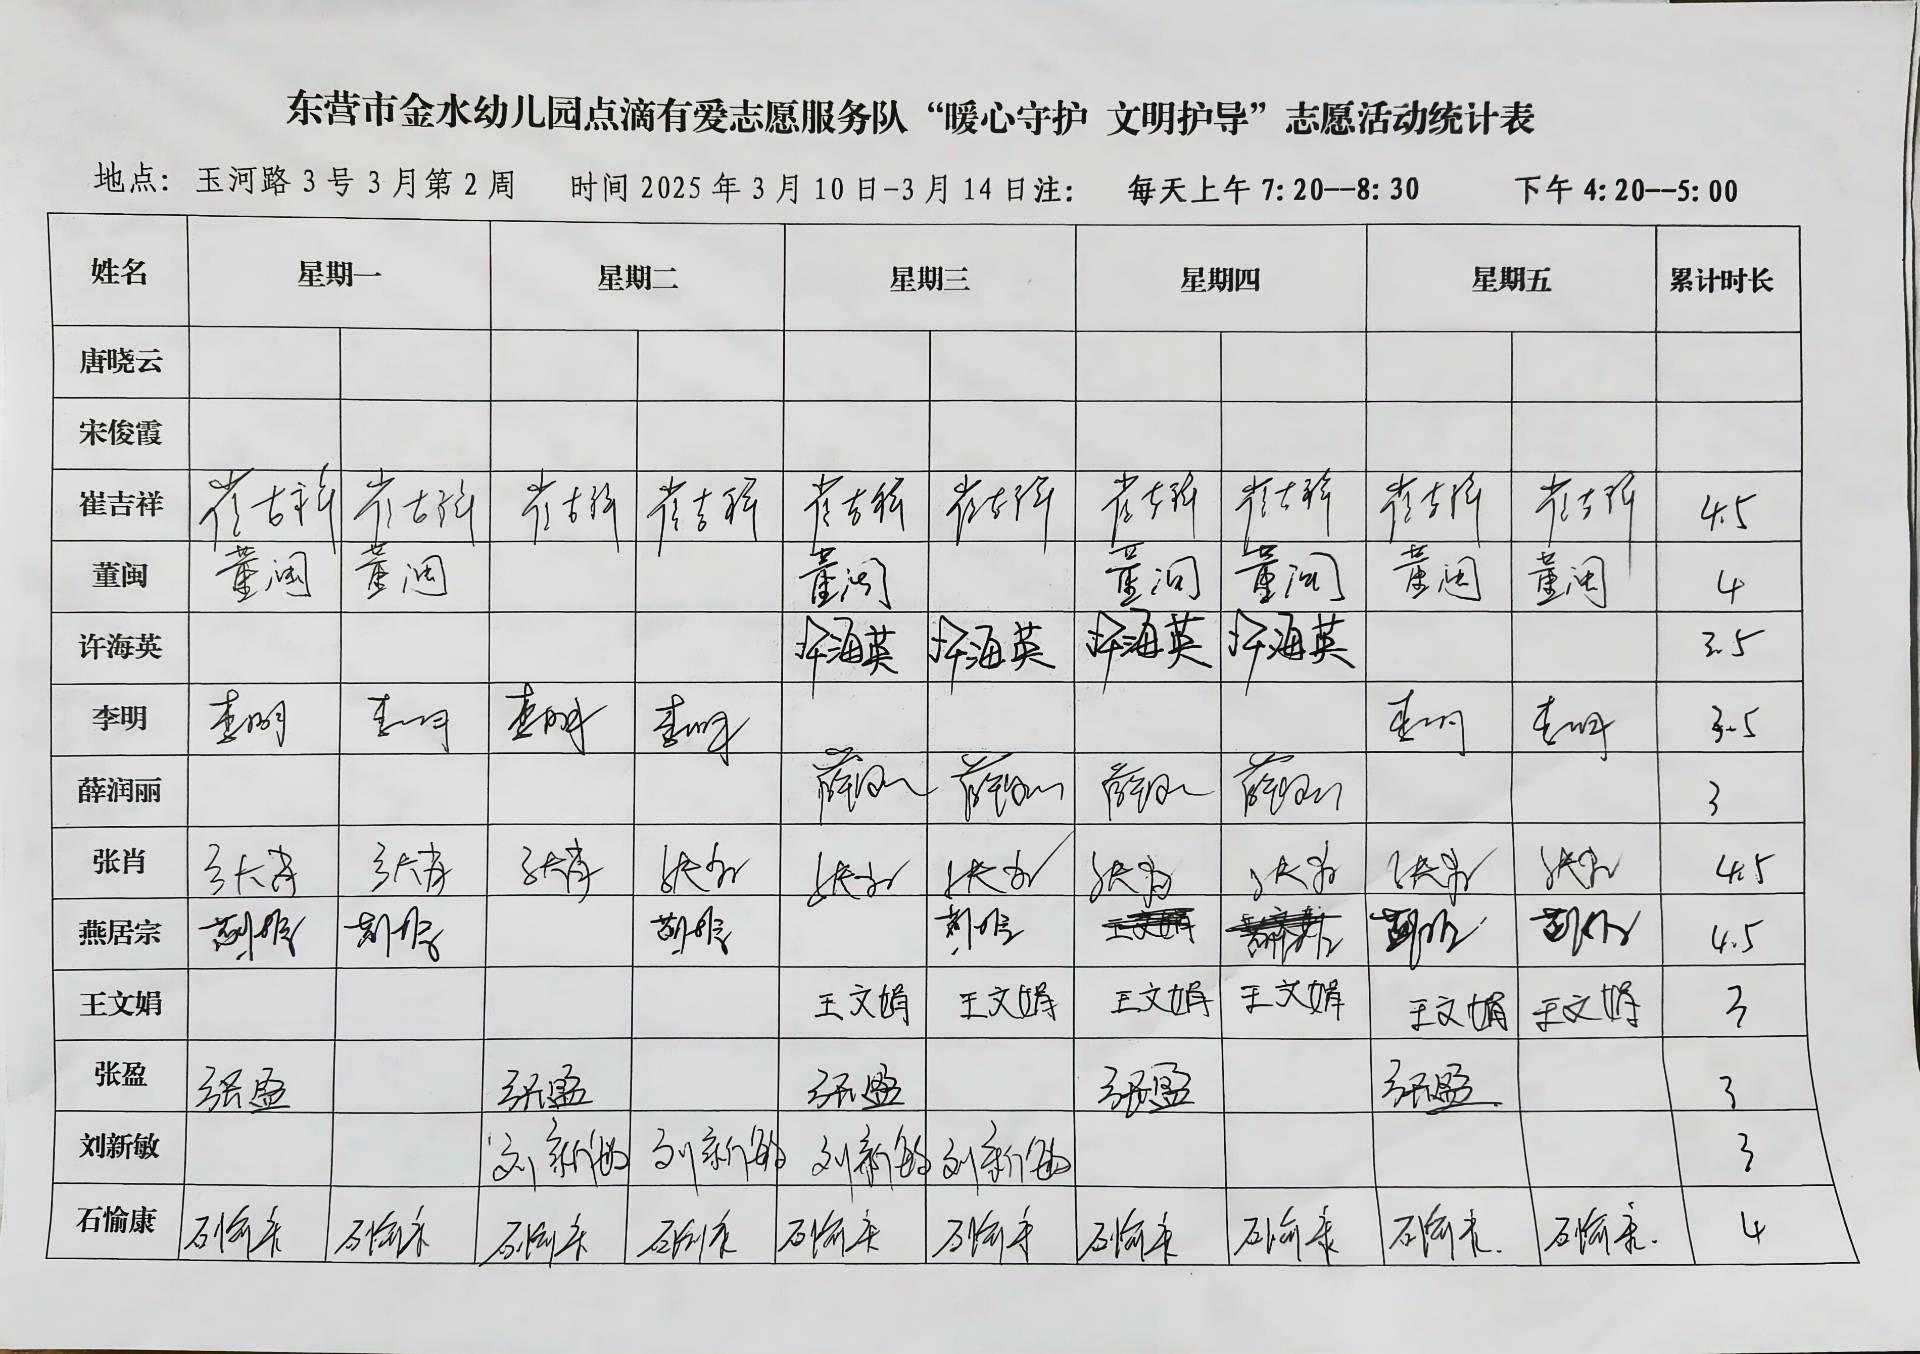 东营市金水幼儿园点滴有爱志愿服务队“暖心守护 文明护导”志愿活动统计表
地点: 玉河路3号3月第2周 时间2025年3月10日-3月14日注: 每天上午7:20--8:30 下午4:20--5:00
姓名 星期一 星期二 星期三 星期四 星期五 累计时长
唐晓云
宋俊霞
崔吉祥 崔吉祥 崔吉祥 崔吉祥 崔吉祥 崔吉祥 崔吉祥 崔吉祥 崔吉祥 崔吉祥 崔吉祥 4.5
董闽 董闽 董闽 董闽 董闽 董闽 董闽 董闽 4
许海英 许海英 许海英 许海英 许海英 3.5
李明 李明 李明 李明 李明 李明 李明 3.5
薛润丽 薛润丽 薛润丽 薛润丽 薛润丽 3
张肖 张肖 张肖 张肖 张肖 张肖 张肖 张肖 张肖 张肖 张肖 4.5
燕居宗 王文娟 4.5
王文娟 王文娟 王文娟 王文娟 王文娟 王文娟 王文娟 3
张盈 张盈 张盈 张盈 张盈 张盈 3
刘新敏 刘新敏 刘新敏 刘新敏 刘新敏 3
石愉康 石愉康 石愉康 石愉康 石愉康 石愉康 石愉康 石愉康 石愉康 石愉康 石愉康 4